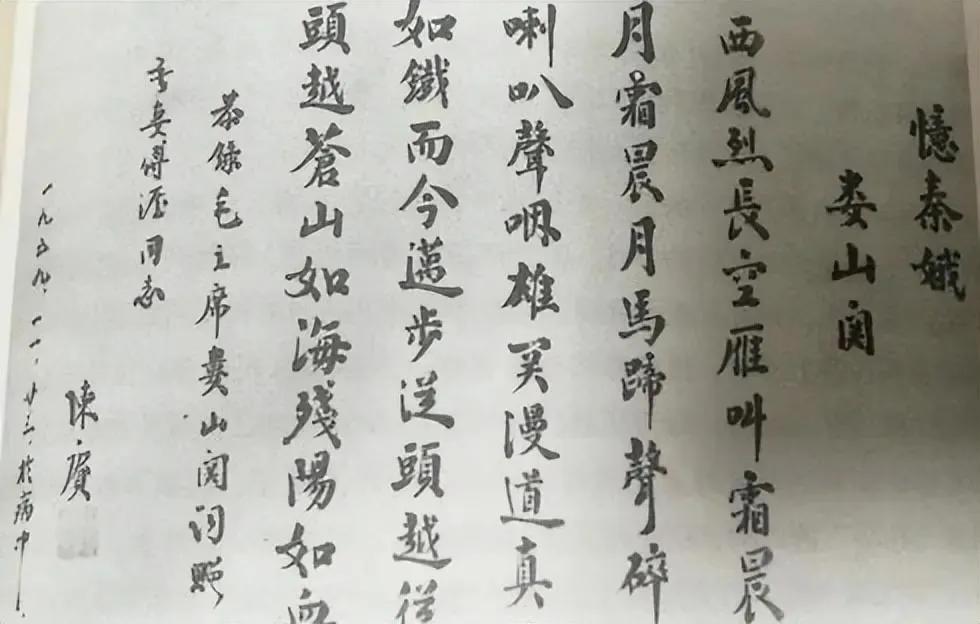 憶秦娥
娄山関
西風烈長空雁叫霜晨
月霜晨月馬蹄聲碎
喇叭聲咽雄関漫道真
如鐵而今邁步從頭越從
頭越蒼山如海殘陽如血
恭録毛主席婁山関词贈
吾妻傅涯同志
陳賡
一九五九.一一.廿三.於病中